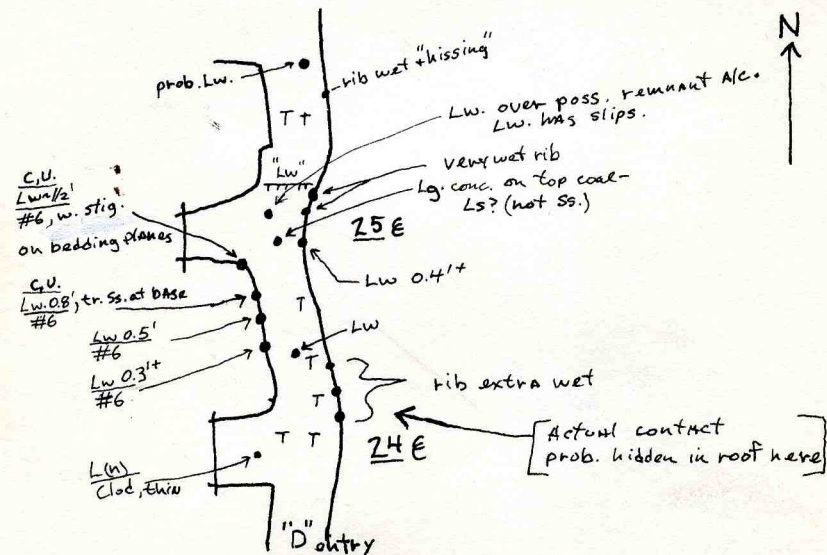 N
prob. Lw.
rib wet + "hissing"
T T
Lw. over poss. remnant A/c.
Lw. has slips.
"Lw"
very wet rib
Lg. conc. on top coal-
Ls? (not Ss.)
C.U.
#6, w. stig.
on bedding planes
25 E
Lw 0.4'+
C.U.
Lw. 0.8', tr. Ss. at base
#6
T
Lw 0.5'
#6
Lw
Lw 0.3'+
#6
T
rib extra wet
T
T
T T
24 E
[Actual contact
prob. hidden in roof here]
L(n)
Clod, thin
"D" entry